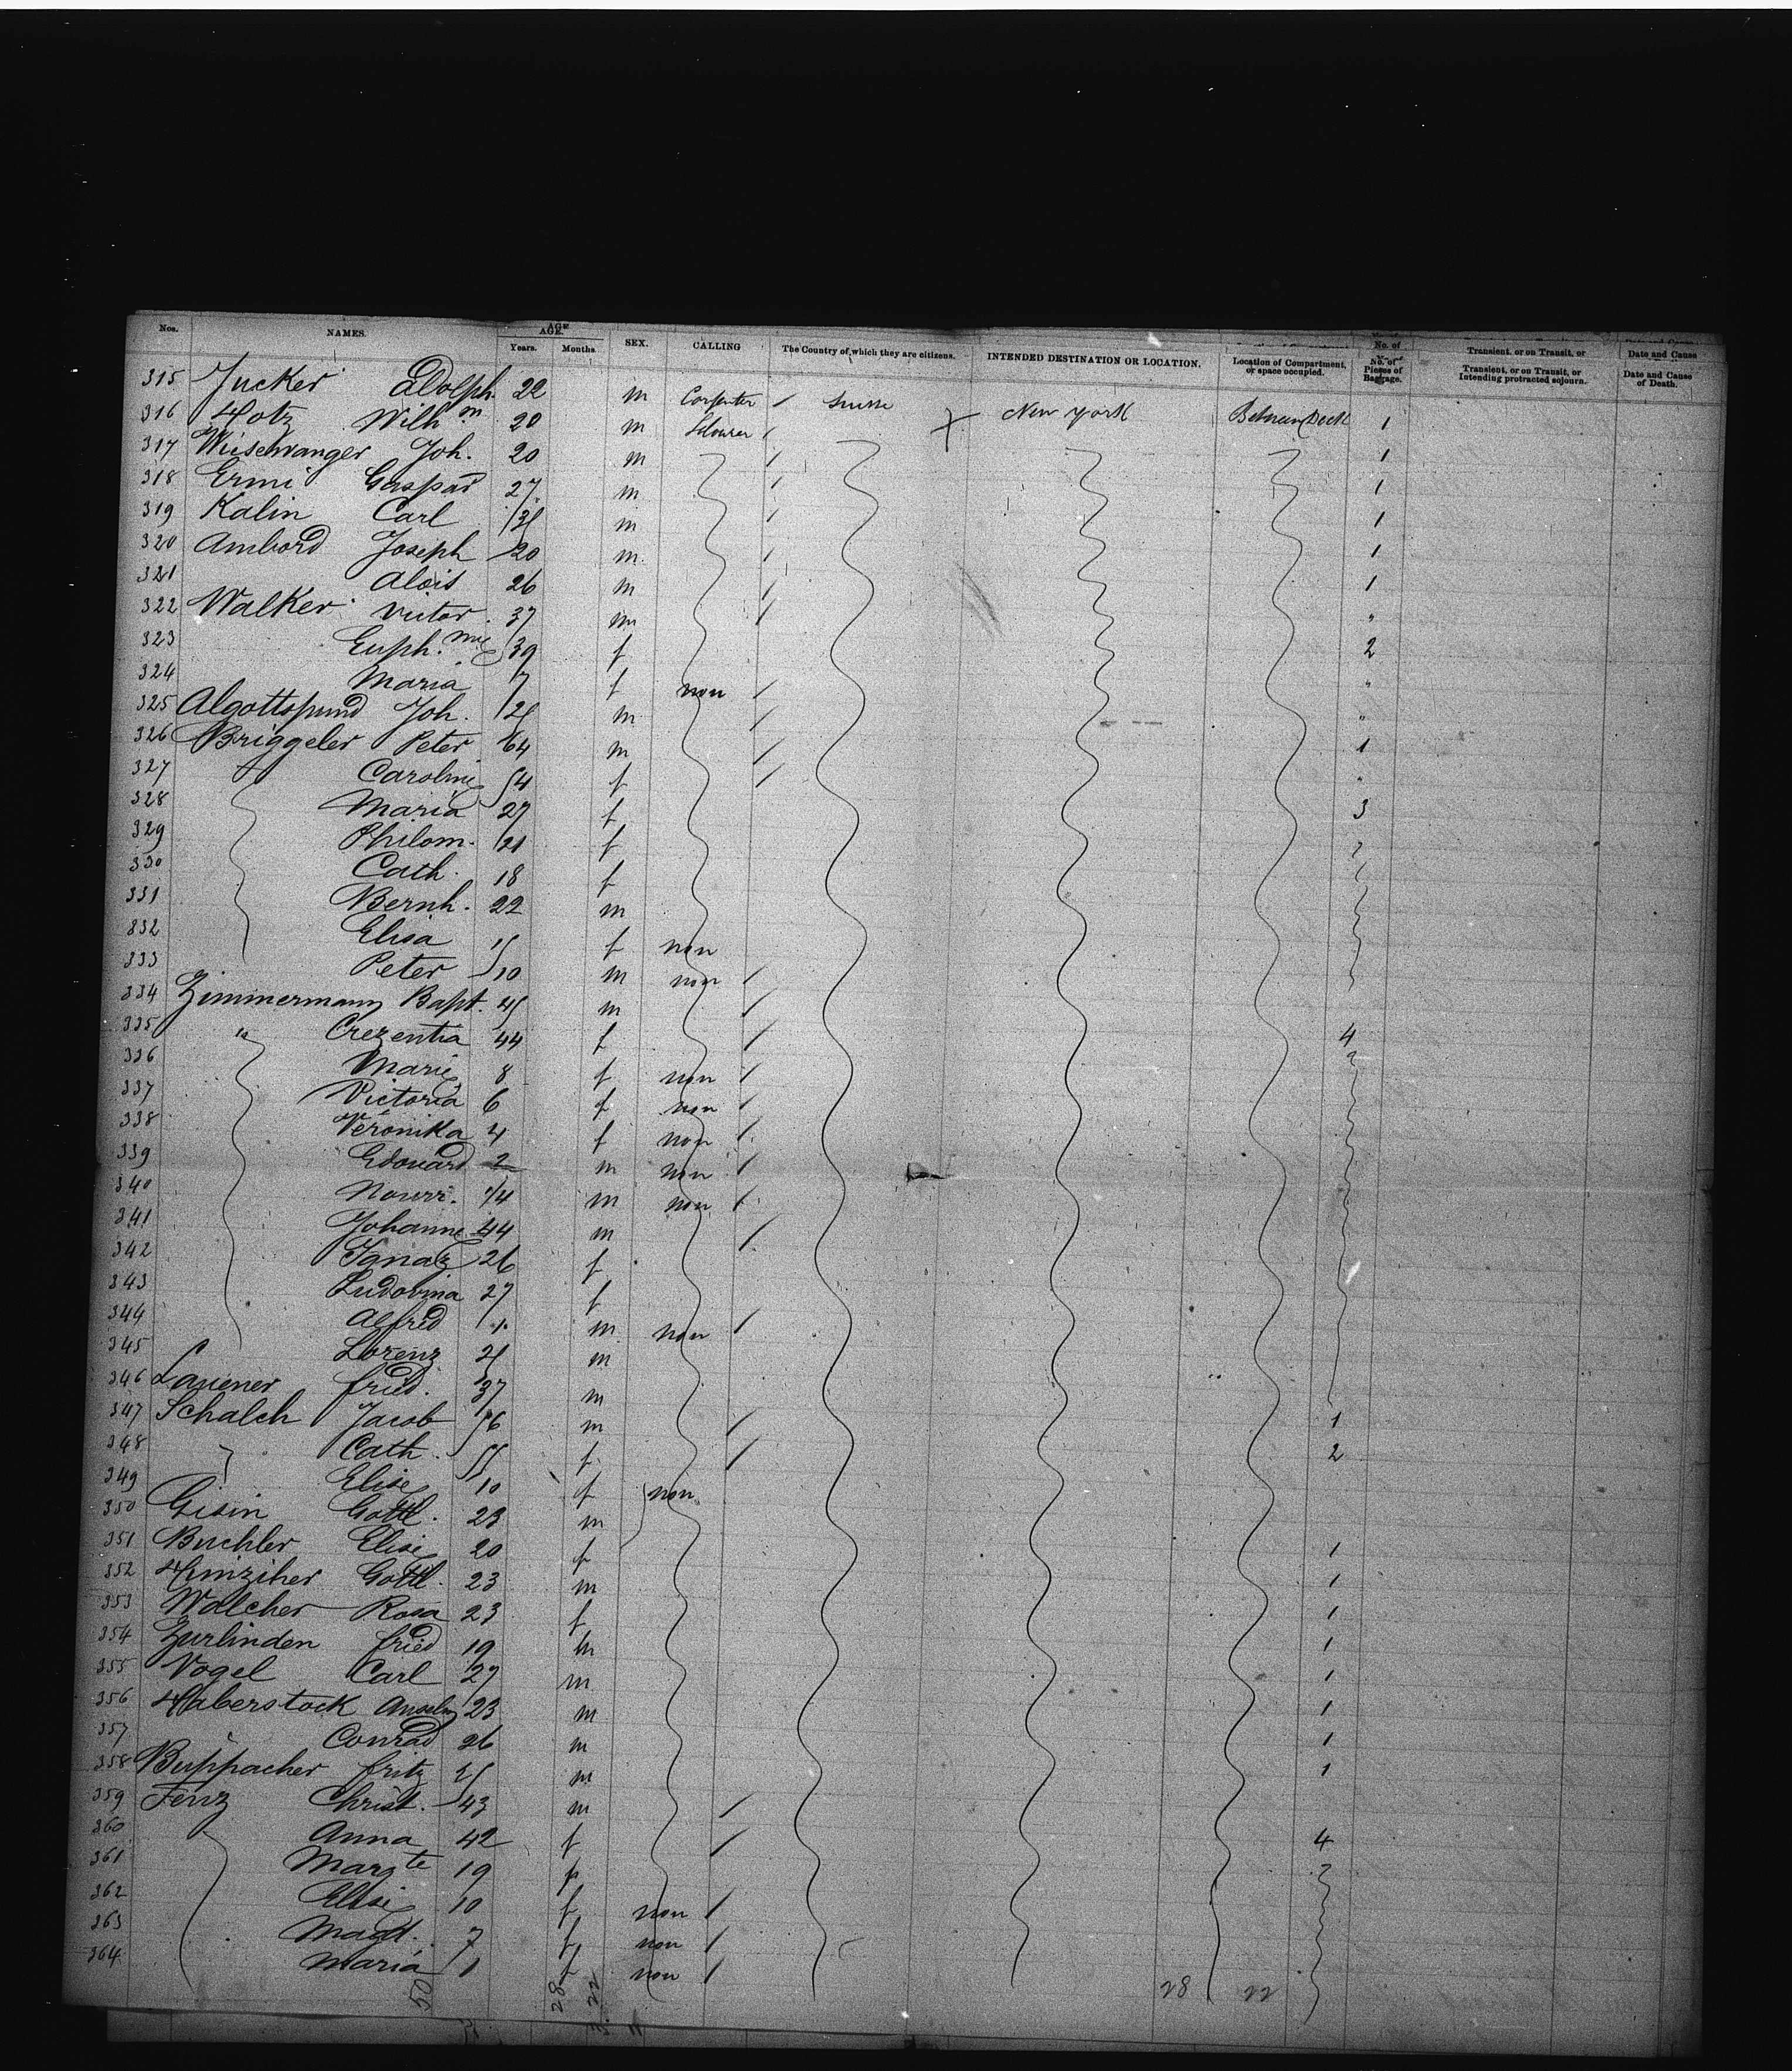 Nos. NAMES. AGE. Years. Months SEX. CALLING The Country of which they are citizens. INTENDED DESTINATION OR LOCATION. Location of Compartment, or space occupied. No. of Pieces of Baggage. Transient, or on Transit, or Intending protracted sojourn. Date and Cause of Death.
315 Jucker Adolph 22 m Carpenter / Suisse New York Between Deck 1
316 Hotz Wilhm 20 m /
317 Weisehvanger Joh. 20 m / 1
318 Ermi Gaspar 27 m / 1
319 Kalin Carl m / 1
320 Ambord Joseph 20 m / 1
321 Alois 26 m / 1
322 Walker Victor 37 m / "
323 Euph.mie 39 f 2
324 Maria 7 f non / "
325 Algottspund Joh. m / "
326 Briggeler Peter 64 m / 1
327 " Caroline 54 f / "
328 Maria 27 f 3
329 Philom. 21 f
330 Cath. 18 f
331 Bernh. 22 m
332 Elisa 15 f non
333 Peter 10 m non /
334 Zimmermann Bapt. 45 m /
335 " Crezentia 44 f / 4
336 Marie 8 f non /
337 Victoria 6 f non /
338 Véronika 4 f non /
339 Edouard 2 m non /
340 Nourr. 1/4 m non /
341 Johanne 44 m /
342 Ignaz 26 f
343 Ludovina 27 f
344 Alfred 1 m non /
345 Lorenz m
346 Lauener fried. 37 m
347 Schalch Jacob 56 m / 1
348 Cath. 55 f / 2
349 Elise 10 f non
350 Gisin Gottl. 23 m
351 Buchler Elise 20 f 1
352 Hinziher Gottl. 23 m 1
353 Walcher Rosa 23 f 1
354 Zurlinden fried 19 m 1
355 Vogel Carl 27 m 1
356 Haberstock Anselm 23 m 1
357 Conrad 26 m 1
358 Buppacher fritz 25 m 1
359 Fenz Christ. 43 m /
360 Anna 42 f / 4
361 Margte 19 f
362 Elise 10 f non /
363 Magd. 7 f non /
364 Maria 1 f non /
50 28 22 28 22